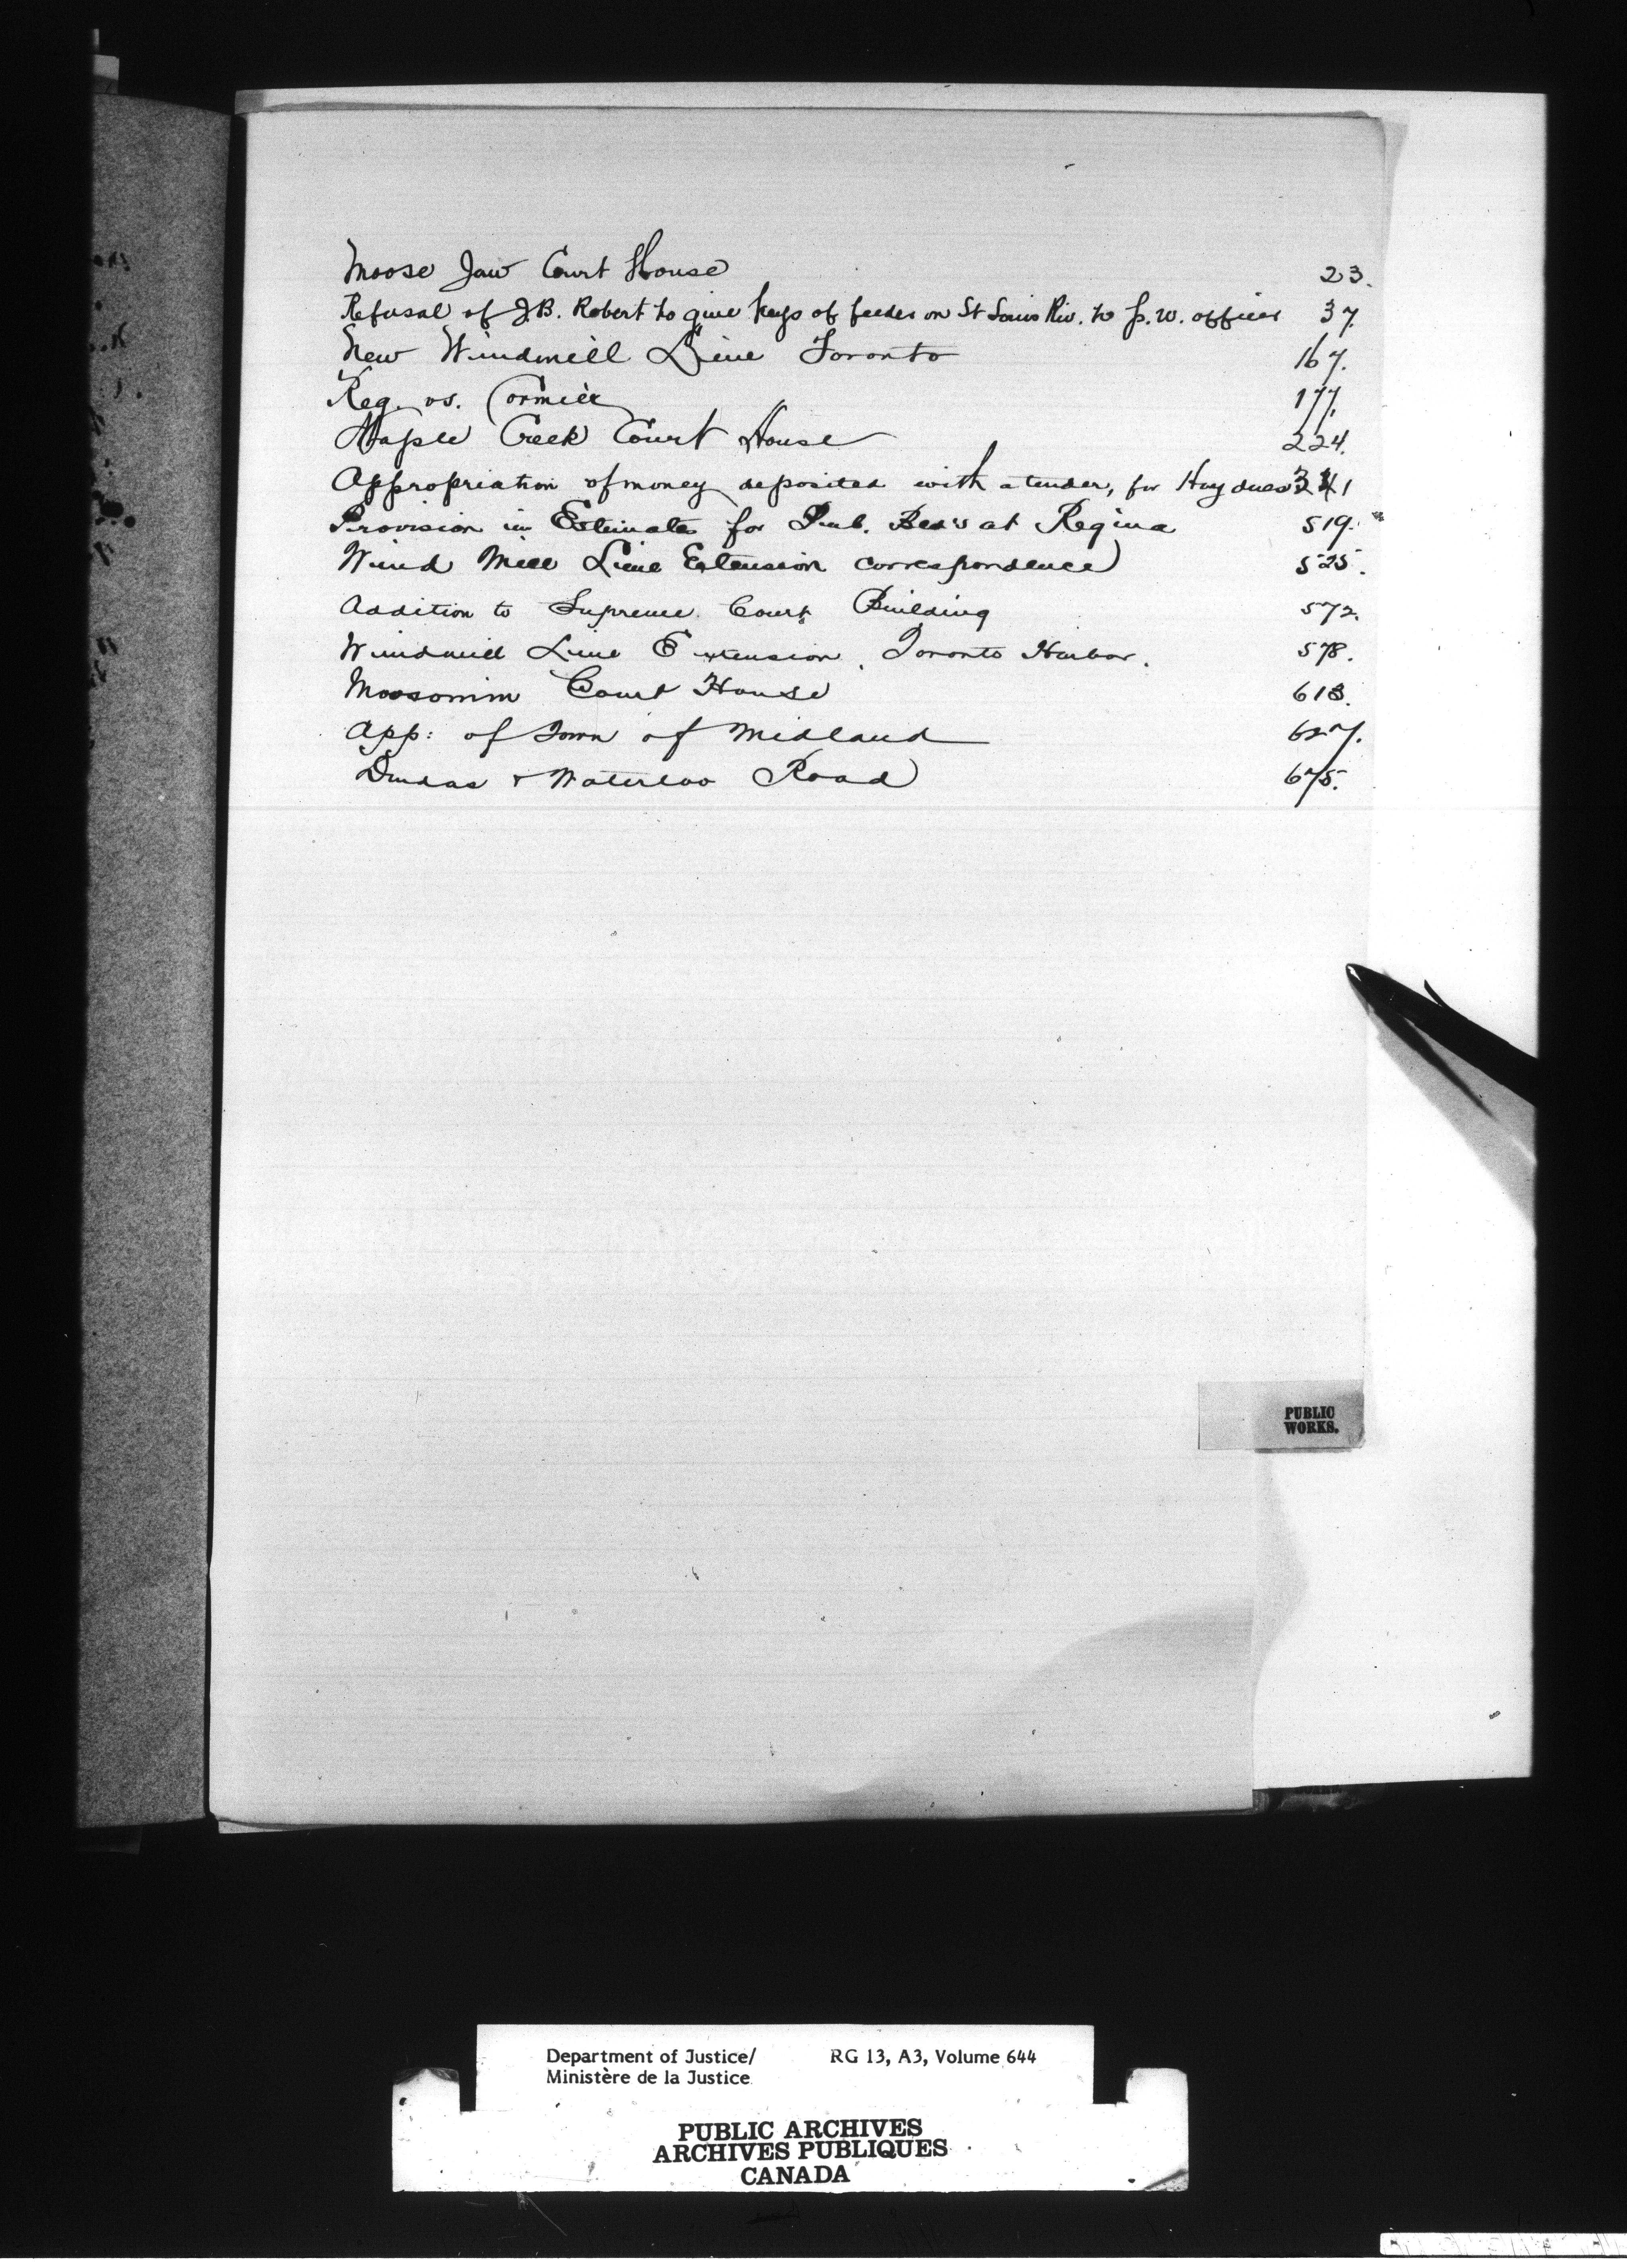 Moose Jaw Court House 23.
Refusal of J.B. Robert to give keys of feeder on St Louis Riv. to p.w. officer 37.
New Windmill Line Toronto 167.
Reg. vs. Cormier 177.
Maple Creek Court House 224.
Appropriation of money deposited with a tender, for Hay dues 341
Provision in Estimates for Pub. at Regina 519.
Wind Mill Line Extension correspondence 525.
Addition to Supreme Court Building 572.
Windmill Line Extension, Toronto Harbor. 578.
Moosomin Court House 613.
App: of Town of Midland 627.
Dundas & Waterloo Road 675.
PUBLIC
WORKS.
Department of Justice/ RG 13, A3, Volume 644
Ministère de la Justice
PUBLIC ARCHIVES
ARCHIVES PUBLIQUES
CANADA